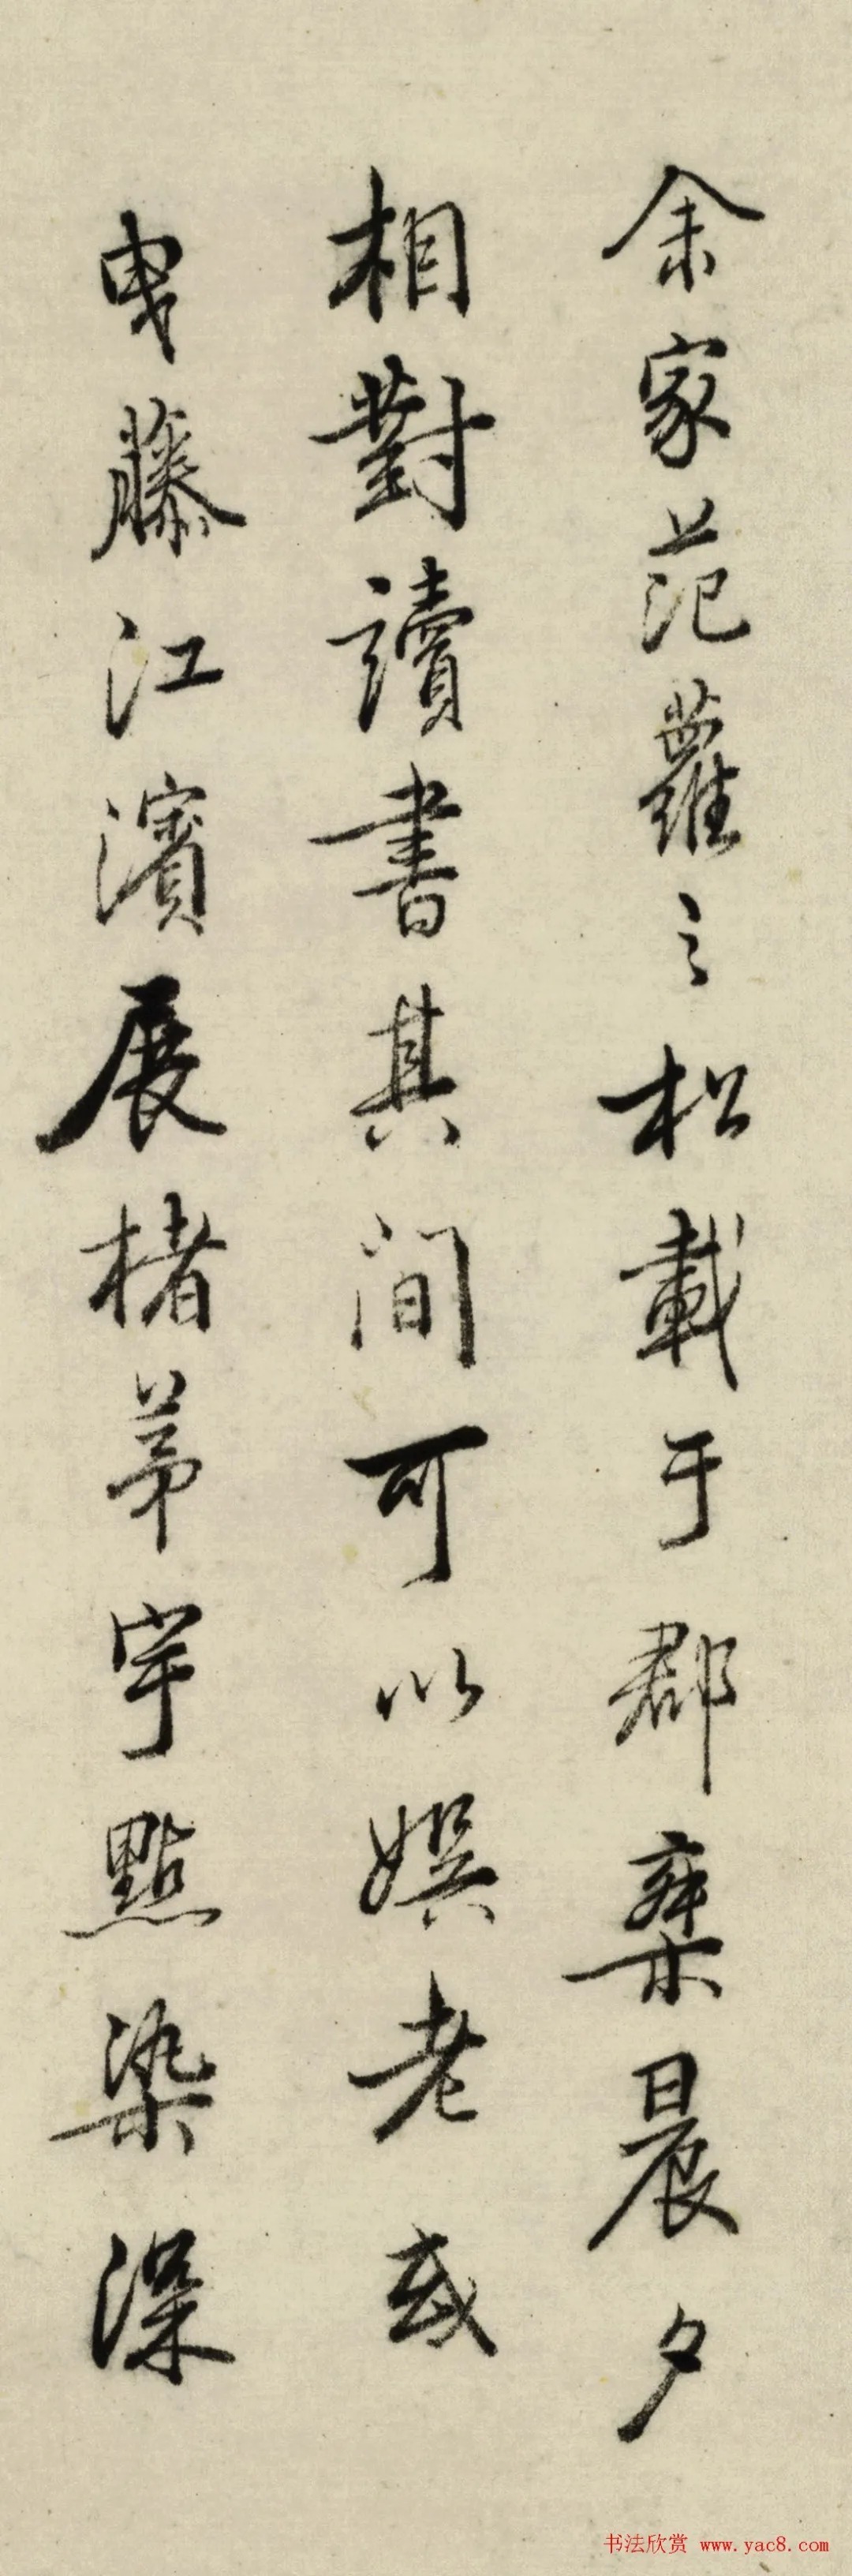 余家范蘿之松載于郡乘晨夕
相對讀書其間可以娯老或
曳藤江濱展楮茅宇點染深
书法欣赏 www.yac8.com